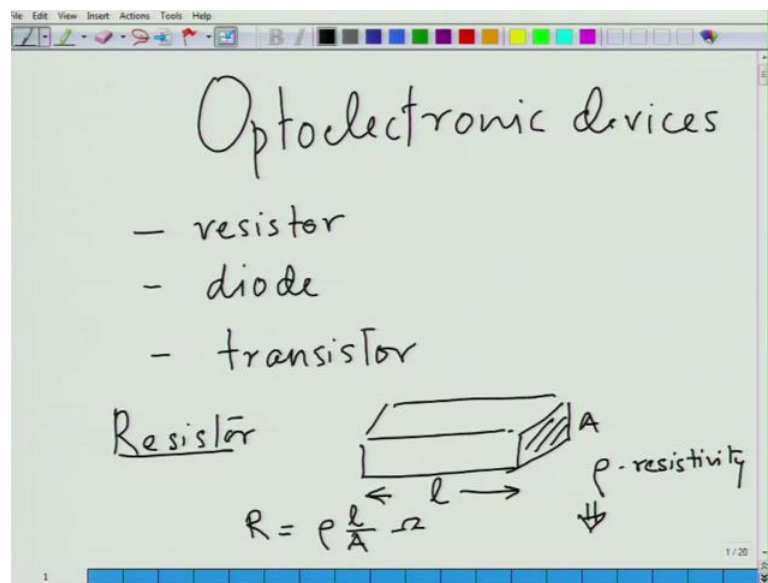 File Edit View Insert Actions Tools Help
B I
Optoelectronic devices
- resistor
- diode
- transistor
Resistor
A
ρ - resistivity
l
R = ρ l/A Ω
⇓
1 / 20
1